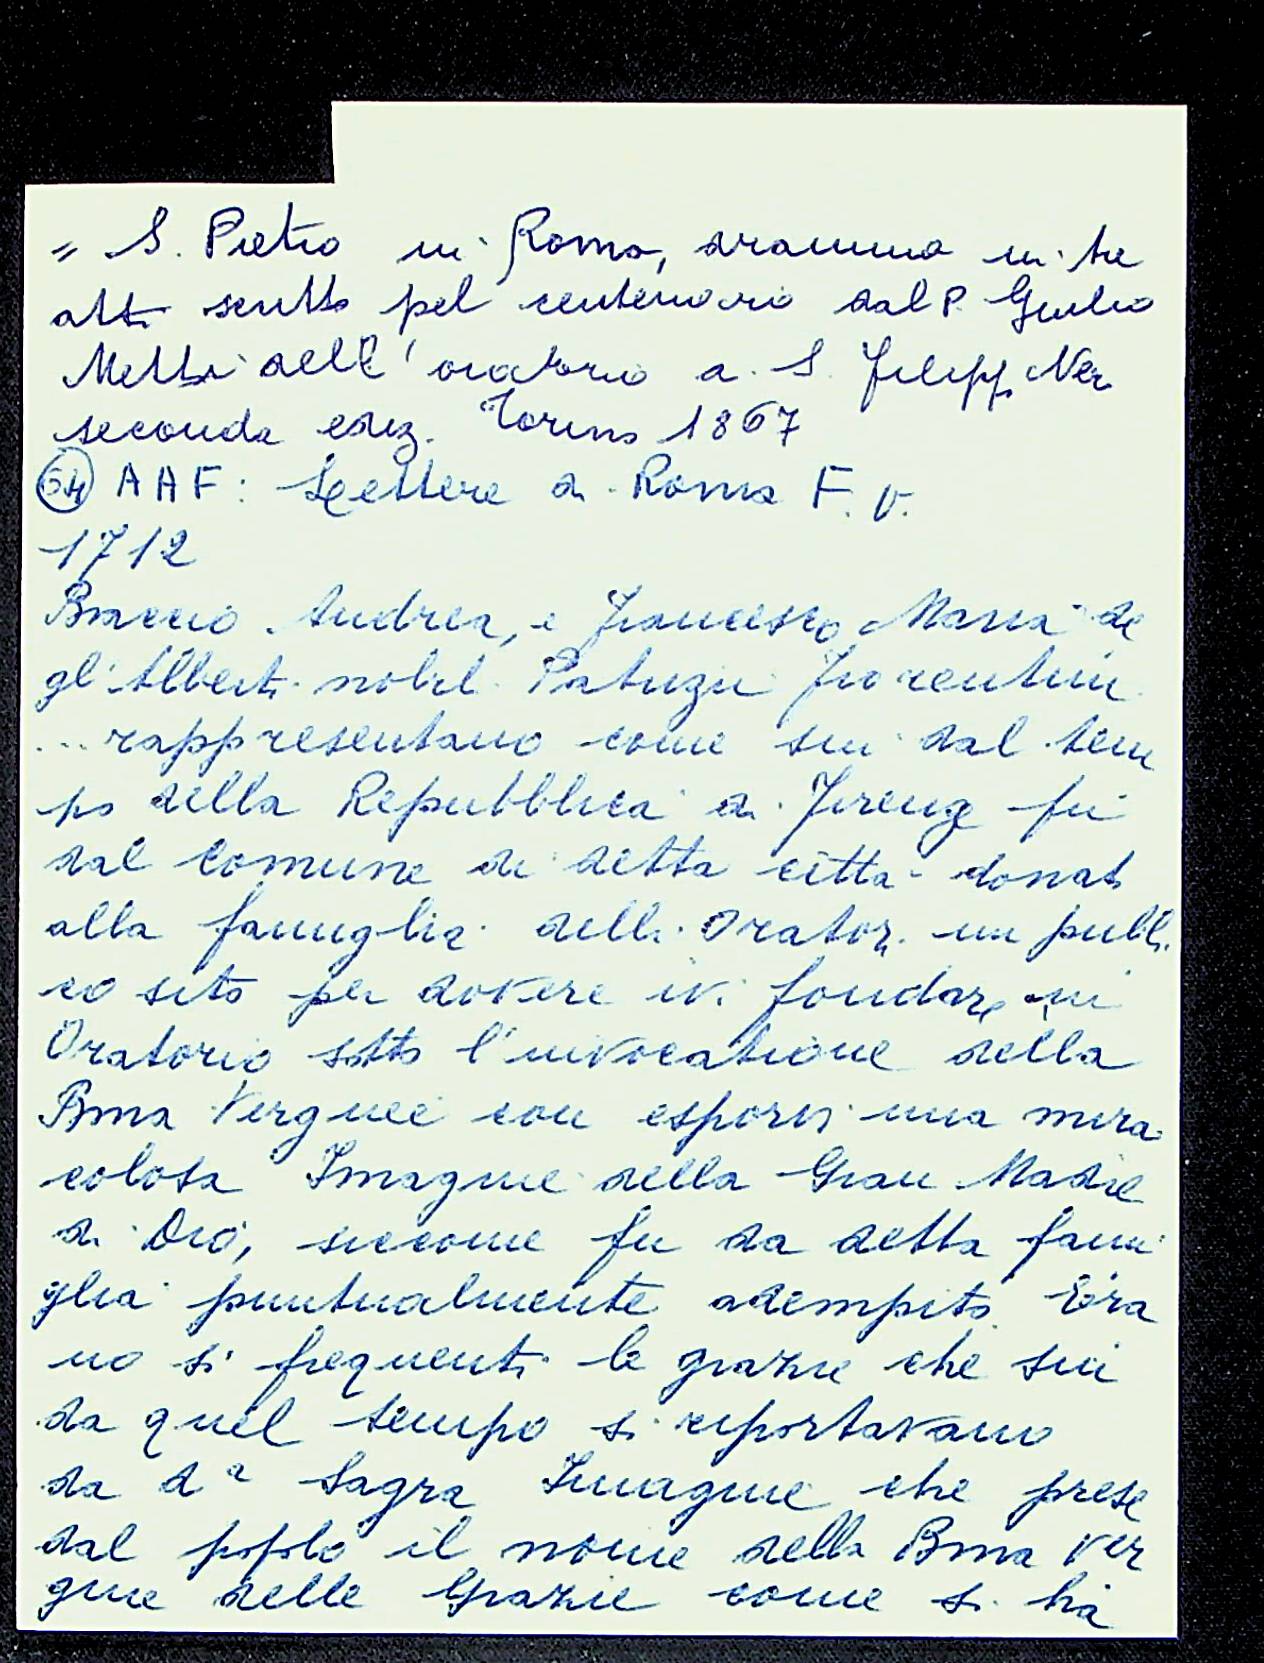 " S. Pietro in Roma, dramma in tre
atti scritto pel centenario dal P. Giulio
Metti dell'oratorio di S. Filipp Neri
seconda ediz. Torino 1867
64 AAF: Lettere di Roma F. V.
1712
Braccio Andrea, e Francesco Maria de
gl'Alberti nobili Patrizii Fiorentini
... rappresentano come sin dal tem
po della Repubblica di Firenze fù
dal Comune di detta città donato
alla famiglia delli Oratori un pubbli
co sito per dovere ivi fondare un
Oratorio sotto l'invocatione della
Bma Vergine con esporvi una mira
colosa Imagine della Gran Madre
di Dio, siccome fu da detta fami
glia puntualmente adempito. Era
no sì frequenti le grazie che sin
da quel tempo si riportavano
da dᵃ Sagra Imagine che prese
dal popolo il nome della Bma Ver
gine delle Grazie come si hà